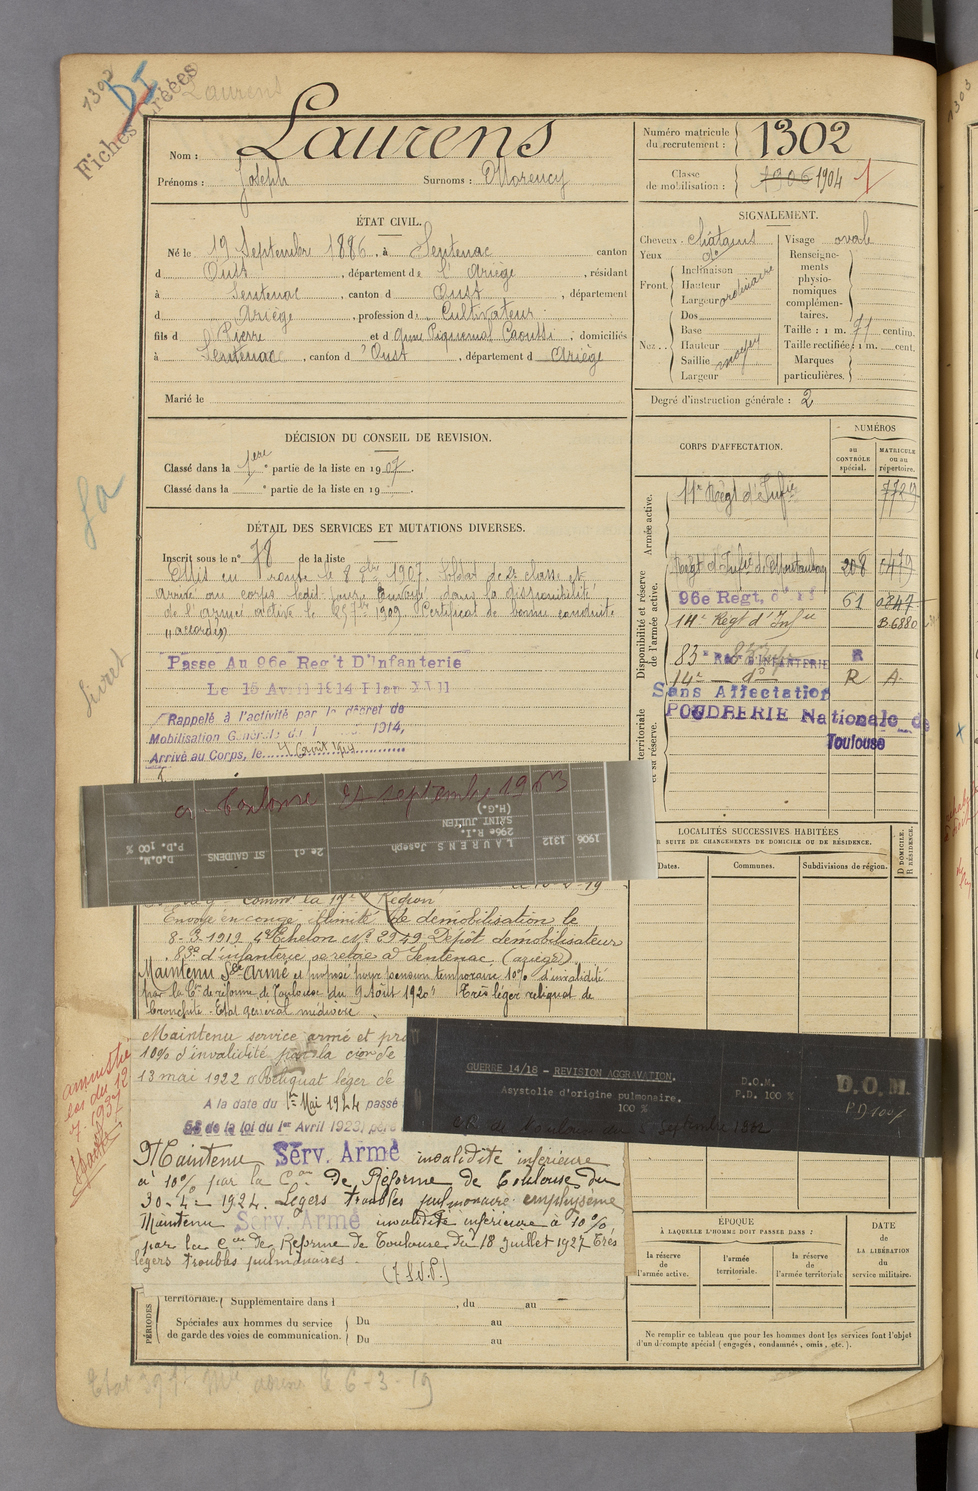 1302
Fiches Créées
Laurens
Nom : Laurens
Prénoms : Joseph Surnoms : Morency
Numéro matricule du recrutement : 1302
Classe de mobilisation : 1906 1904 1
ÉTAT CIVIL.
Né le 19 Septembre 1886, à Sentenac canton
d Oust, département de l'Ariège, résidant
à Sentenac, canton d Oust, département
d Ariège, profession de Cultivateur
fils de Pierre et d Anne Piquemal Caoussi, domiciliés
à Sentenac, canton d'Oust, département d Ariège
Marié le
SIGNALEMENT.
Cheveux châtains
Yeux do
Front. Inclinaison
Hauteur
Largeur
ordinaire
Nez. Dos
Base
Hauteur
Saillie
Largeur
moyen
Visage ovale
Renseignements physionomiques complémentaires.
Taille : 1 m. 71 centim.
Taille rectifiée : 1 m. cent.
Marques particulières.
Degré d'instruction générale : 2
DÉCISION DU CONSEIL DE REVISION.
Classé dans la 1ère partie de la liste en 1907.
Classé dans la e partie de la liste en 19 .
DÉTAIL DES SERVICES ET MUTATIONS DIVERSES.
Inscrit sous le n° 78 de la liste
Mis en route le 8 8bre 1907. Soldat de 2e classe et
arrivé au corps ledit jour. Envoyé dans la disponibilité
de l'armée active le 25 7bre 1909. Certificat de bonne conduite
"accordé"
Passe Au 96e Reg't D'Infanterie
Le 15 Avril 1914 Plan XVII
Rappelé à l'activité par le décret de
Mobilisation Générale du 1 1914,
Arrivé au Corps, le 4 août 1914
CORPS D'AFFECTATION.
NUMÉROS
au CONTRÔLE spécial.
MATRICULE ou au répertoire.
Armée active.
11e Régt d'Infie 7729
Disponibilité et réserve de l'armée active.
Régt d'Infie de Montauban 208
96e Regt, 61
14e Régt d'Infie B.6880
83e Rég. D'INFANTERIE R
14e do R A
territoriale et sa réserve.
Sans Affectation
POUDRERIE Nationale de
Toulouse
Livret
Toulouse 21 septembre 1963
1906 1312 LAURENS Joseph 2e cl ST GAUDENS D.O.M.
296e R.I. P.D. 100 %
SAINT JULIEN
(H.G.)
LOCALITÉS SUCCESSIVES HABITÉES
SUITE DE CHANGEMENTS DE DOMICILE OU DE RÉSIDENCE.
Dates. Communes. Subdivisions de région. D DOMICILE. R RÉSIDENCE.
la 17e Région
Envoyé en congé illimité de démobilisation le
8-3-1919 4e Echelon No 3949 Dépôt démobilisateur
83e d'infanterie se retire à Sentenac (ariège)
Maintenu Sce Armé et proposé pour pension temporaire 10% d'invalidité
par la Con de réforme de Toulouse du 9 Août 1920 Très léger reliquat de
bronchite - Etat général médiocre
Maintenu service armé et pro
10% d'invalidité par la cion de
13 mai 1922 reliquat léger de
A la date du 1er Mai 1924 passé
58 de la loi du 1er Avril 1923,
Maintenu Serv. Armé invalidité inférieure
à 10% par la Con de Réforme de Toulouse du
30-4-1924. Légers troubles pulmonaire emphysème
Maintenu Serv. Armé invalidité inférieure à 10%
par la Con de Réforme de Toulouse du 18 Juillet 1927 Très
légers troubles pulmonaires.
(T.S.V.P.)
amnistie
GUERRE 14/18 - REVISION AGGRAVATION.
Asystolie d'origine pulmonaire.
100 %
D.O.M.
P.D. 100 %
D.O.M.
P.D 100%
ÉPOQUE
À LAQUELLE L'HOMME DOIT PASSER DANS :
la réserve de l'armée active.
l'armée territoriale.
la réserve de l'armée territoriale
DATE DE LA LIBÉRATION du service militaire.
Ne remplir ce tableau que pour les hommes dont les services font l'objet
d'un décompte spécial (engagés, condamnés, omis, etc.).
PÉRIODES
territoriale. Supplémentaire dans l , du au
Spéciales aux hommes du service
de garde des voies de communication.
Du au
Du au
6-3-19